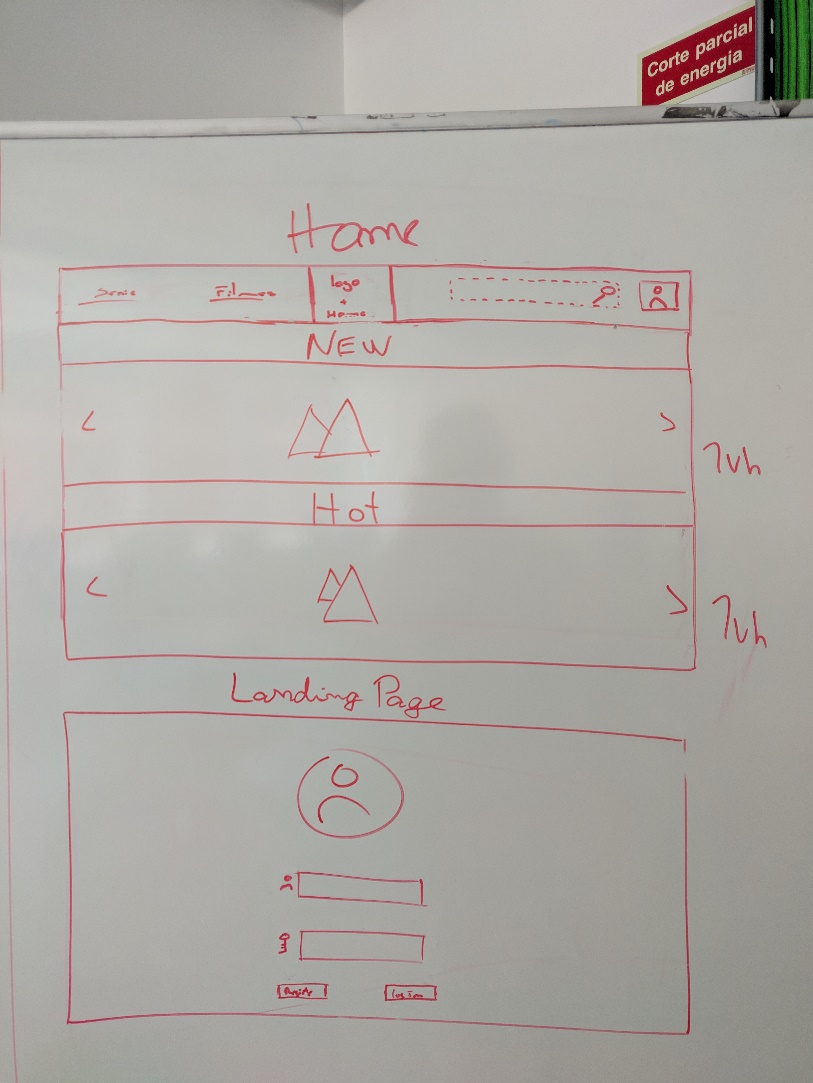 Corte parcial
de energia
Home
Serie
Filmes
logo
+
Home
NEW
<
>
1vh
Hot
<
>
1vh
Landing Page